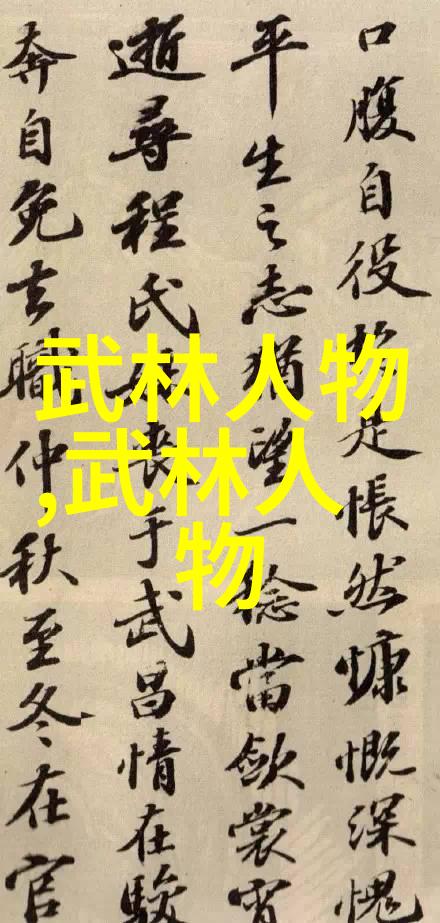 口腹自役於是悵然慷慨深愧
平生之志猶望一稔當斂裳宵
逝尋程氏妹喪于武昌情在駿
奔自免去職仲秋至冬在官
武林人物
,武林人
物